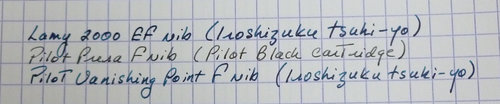 Lamy 2000 EF nib (Iroshizuku tsuki-yo)
Pilot Prera F nib (Pilot Black cartridge)
Pilot Vanishing Point F nib (Iroshizuku tsuki-yo)